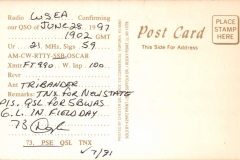 Radio WSEA Confirming
our QSO of JUNE 28 1997
1902 GMT
Ur 21 MHz. Sig 59
AM-CW-RTTY-SSB-OSCAR
Xmt FT990 W. Inp 100
Rcv
Ant TRIBANDER
Remarks: TNX for NEW STATE
PLS. QSL for 5BWAS
G.L. IN FIELD DAY
73
73, PSE QSL TNX
Post Card
This Side is for Address
PLACE
STAMP
HERE